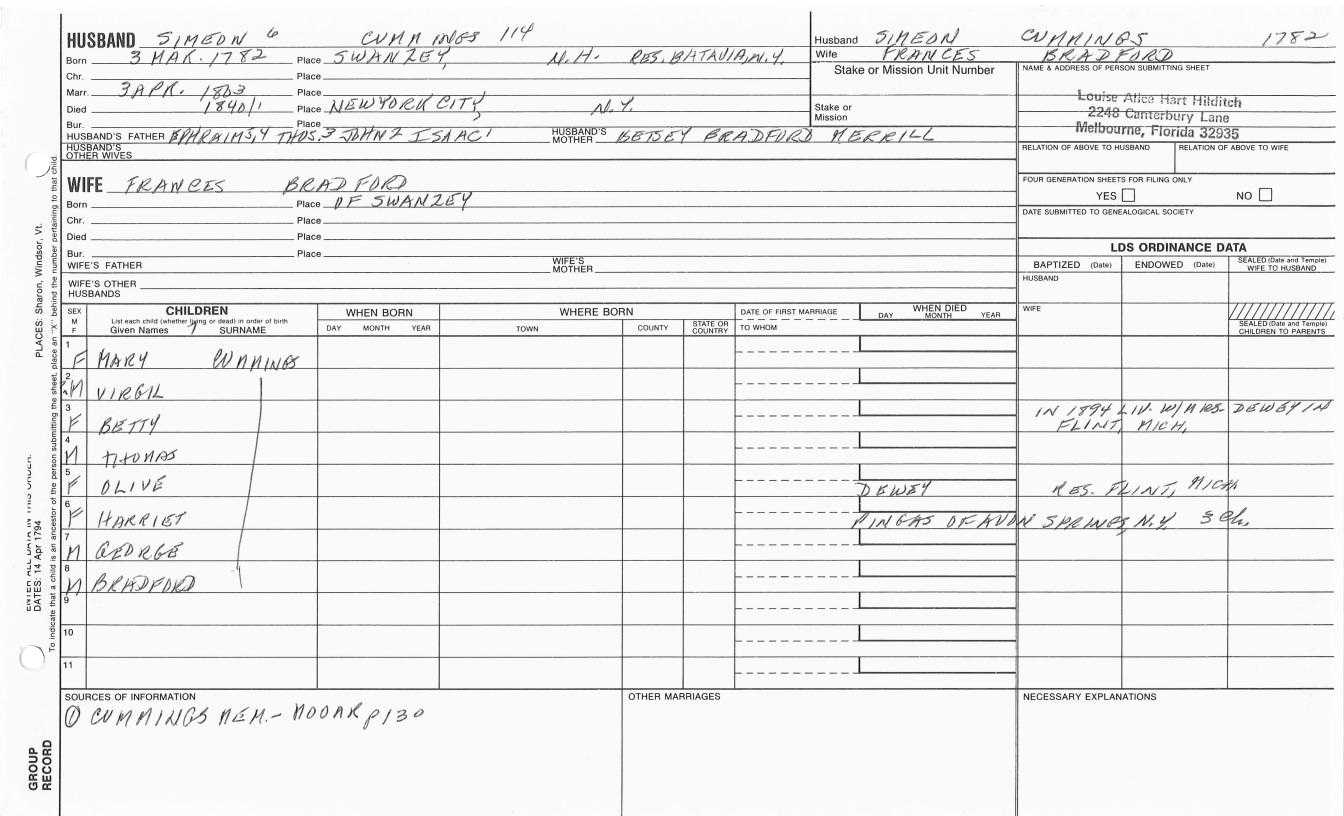 HUSBAND SIMEON 6 CUMMINGS 114
Born 3 MAR. 1782 Place SWANZEY, N.H. RES. BATAVIA, N.Y.
Chr. Place
Marr. 3 APR. 1803 Place
Died 1840/1 Place NEW YORK CITY, N.Y.
Bur. Place
HUSBAND'S FATHER EPHRAIM5,4 THOS.3 JOHN2 ISAAC1 HUSBAND'S MOTHER BETSEY BRADFORD MERRILL
HUSBAND'S OTHER WIVES
Husband SIMEON CUMMINGS 1782
Wife FRANCES BRADFORD
Stake or Mission Unit Number
Stake or Mission
NAME & ADDRESS OF PERSON SUBMITTING SHEET
Louise Alice Hart Hilditch
2248 Canterbury Lane
Melbourne, Florida 32935
RELATION OF ABOVE TO HUSBAND RELATION OF ABOVE TO WIFE
FOUR GENERATION SHEETS FOR FILING ONLY
YES NO
DATE SUBMITTED TO GENEALOGICAL SOCIETY
WIFE FRANCES BRADFORD
Born Place OF SWANZEY
Chr. Place
Died Place
Bur. Place
WIFE'S FATHER WIFE'S MOTHER
WIFE'S OTHER HUSBANDS
LDS ORDINANCE DATA
BAPTIZED (Date) ENDOWED (Date) SEALED (Date and Temple) WIFE TO HUSBAND
HUSBAND
WIFE
SEALED (Date and Temple) CHILDREN TO PARENTS
SEX M F
CHILDREN
List each child (whether living or dead) in order of birth
Given Names SURNAME
WHEN BORN
DAY MONTH YEAR
WHERE BORN
TOWN COUNTY STATE OR COUNTRY
DATE OF FIRST MARRIAGE
TO WHOM
WHEN DIED
DAY MONTH YEAR
1 F MARY CUMMINGS
2 M VIRGIL
3 F BETTY IN 1894 LIV. W/MRS. DEWEY IN
FLINT, MICH.
4 M THOMAS
5 F OLIVE DEWEY RES. FLINT, MICH
6 F HARRIET OF AVON SPRINGS, N.Y. 3 Ch.
7 M GEORGE
8 M BRADFORD
9
10
11
SOURCES OF INFORMATION
① CUMMINGS MEM. - MOOAR p130
OTHER MARRIAGES
NECESSARY EXPLANATIONS
PLACES: Sharon, Windsor, Vt.
To indicate that a child is an ancestor of the person submitting the sheet, place an "X" behind the number pertaining to that child.
ENTER ALL DATA IN THIS ORDER:
DATES: 14 Apr 1794
GROUP
RECORD